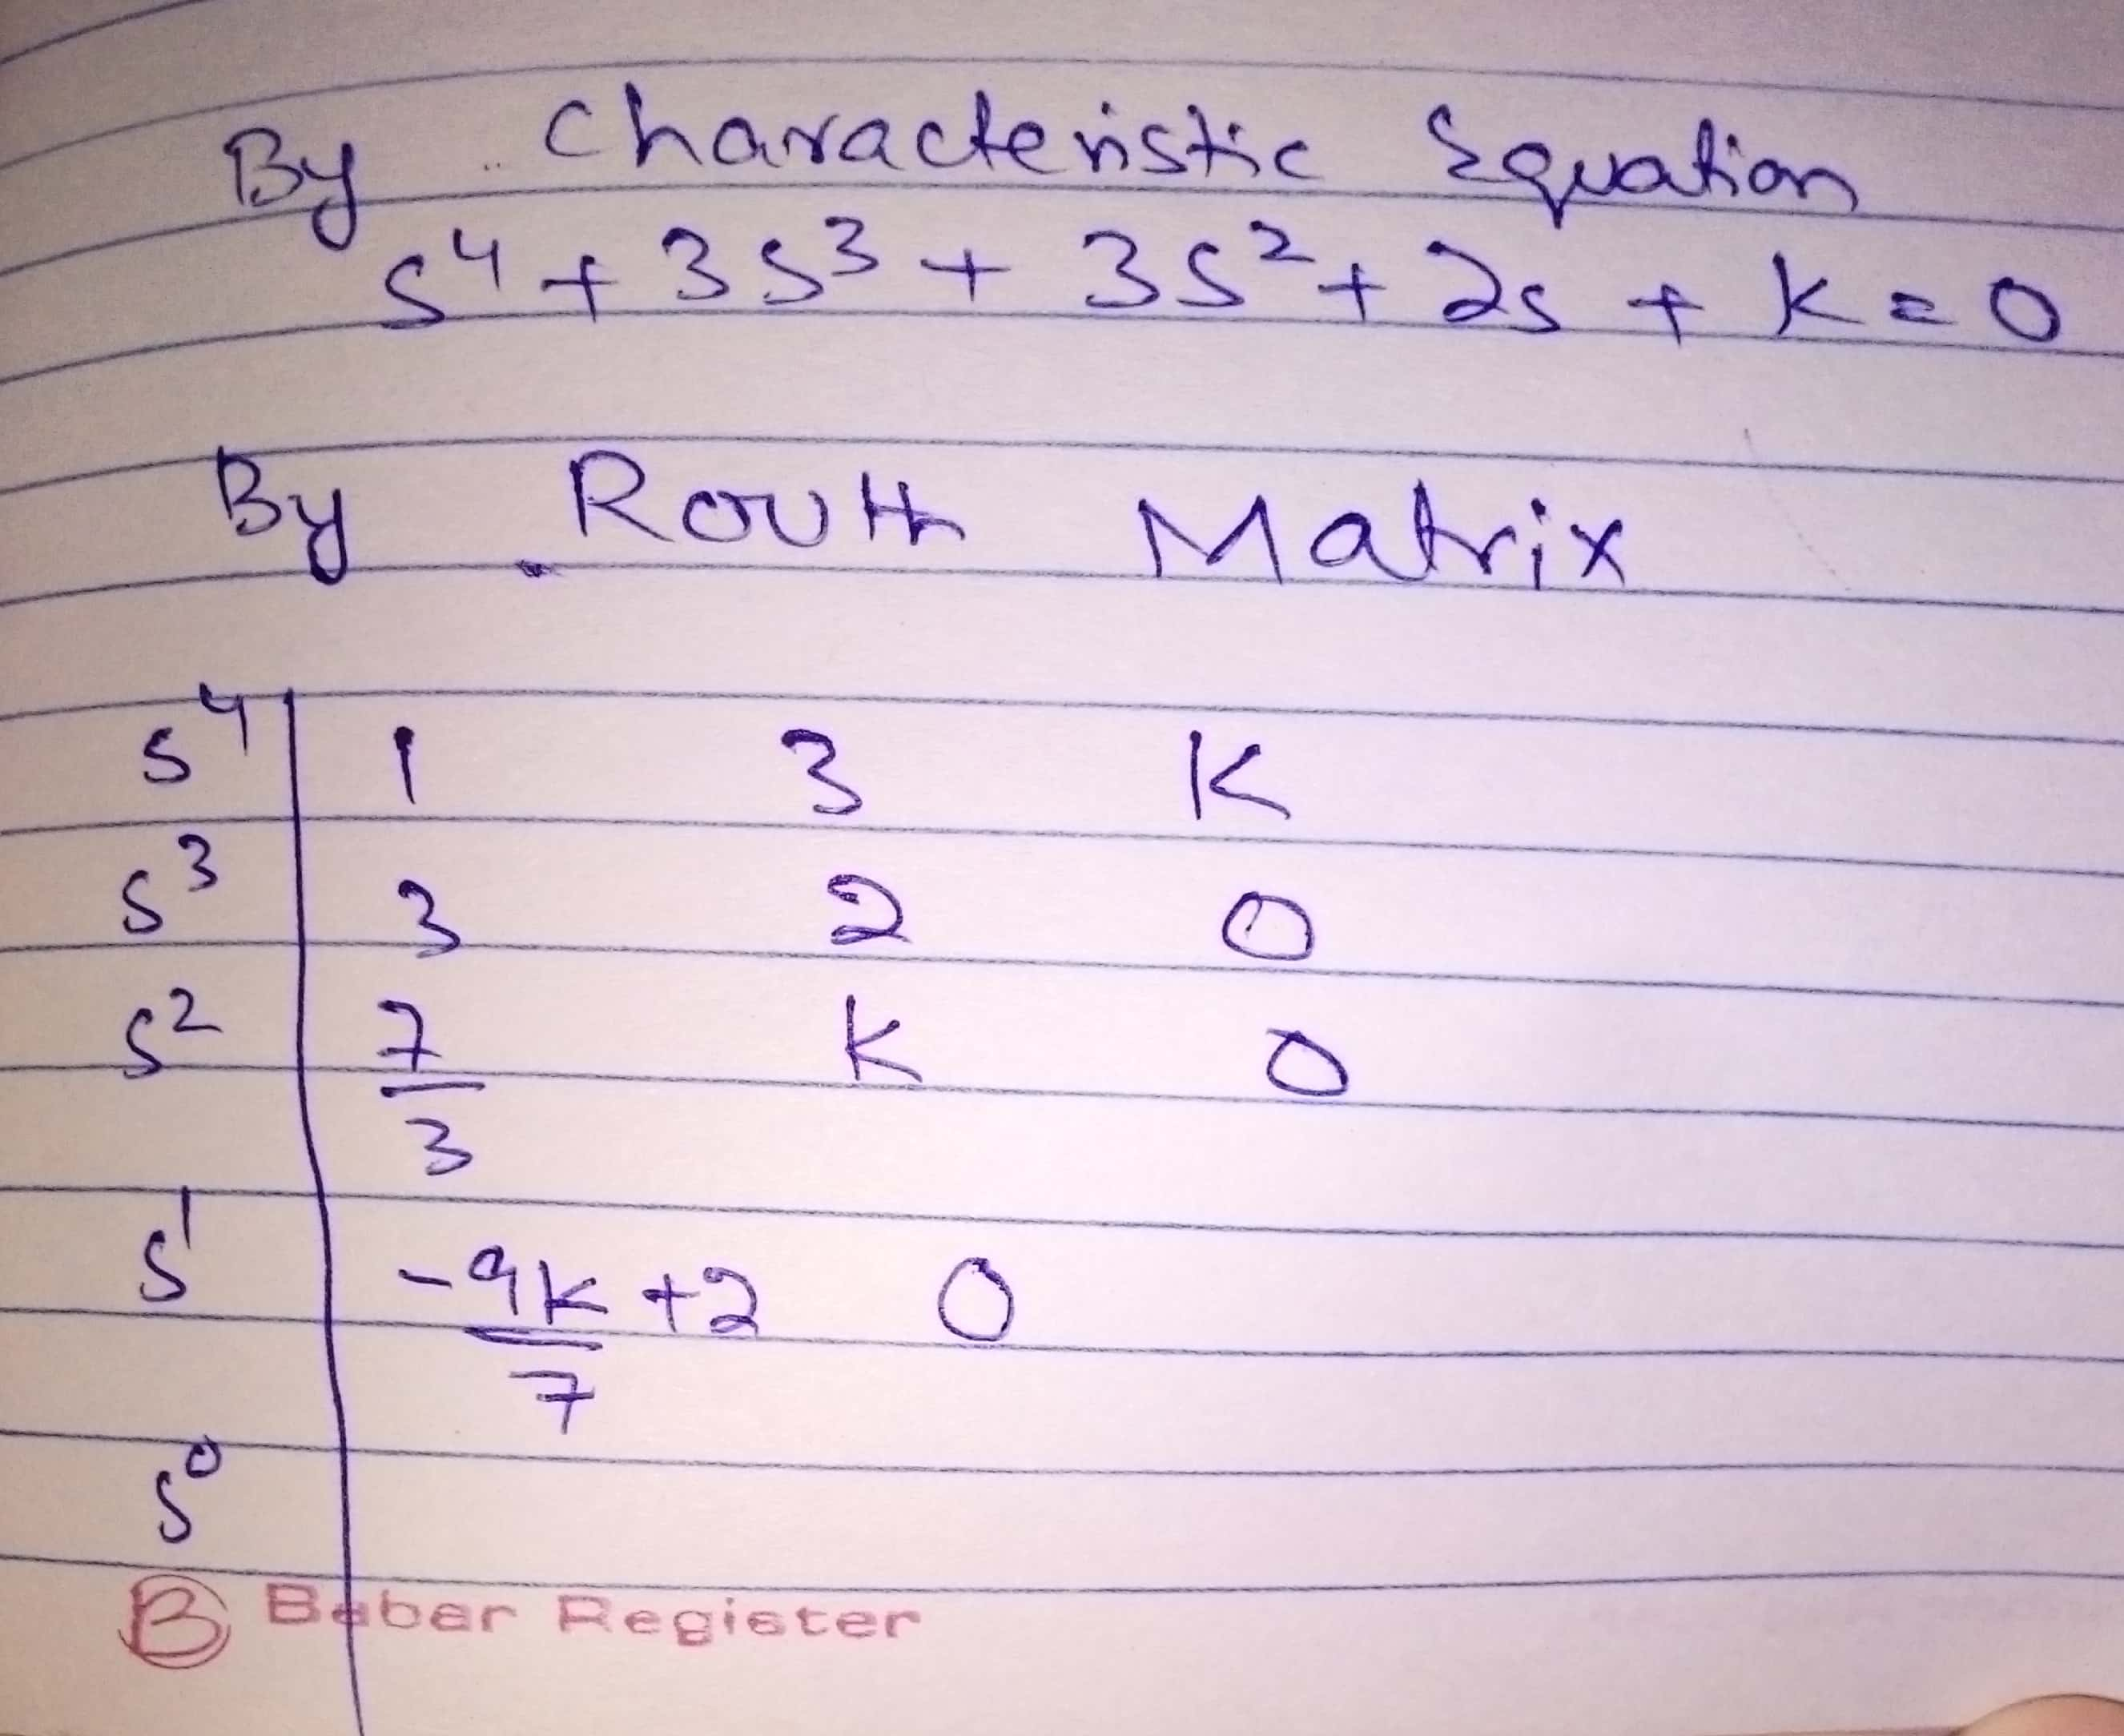 By characteristic Equation
s⁴ + 3s³ + 3s² + 2s + k = 0
By Routh Matrix
s⁴ 1 3 K
s³ 3 2 0
s² 7/3 K 0
s¹ -9k/7 +2 0
s⁰
B Baber Register